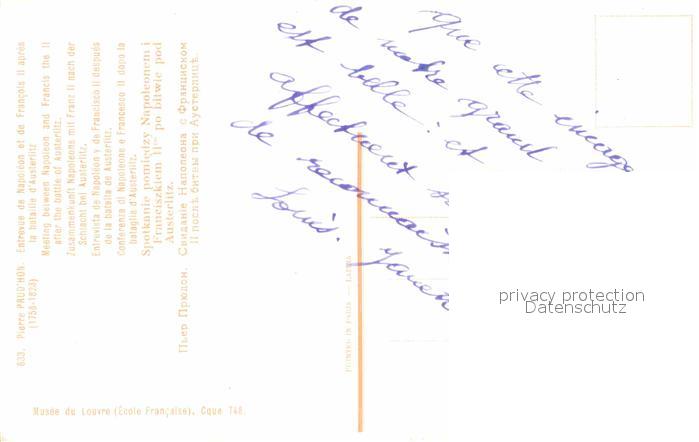 633. Pierre PRUD'HON. Entrevue de Napoléon et de François II après
(1758-1823) la bataille d'Austerlitz
Meeting between Napoleon and Francis the II
after the battle of Austerlitz.
Zusammenkunft Napoleons mit Franz II nach der
Schlacht bei Austerlitz.
Entrevista de Napoleón y de Francisco II después
de la batalla de Austerlitz.
Conferenza di Napoleone e Francesco II dopo la
battaglia d'Austerlitz.
Spotkanie pomiędzy Napoleonem i
Franciszkiem II po bitwie pod
Austerlitz.
Пьер Прюдон. Свидание Наполеона с Франциском
II послѣ битвы при Аустерлицѣ.
Musée du Louvre (École Française). Cque 748.
PRINTED IN PARIS — LAPINA
que cette image
de notre grand
est belle! et
affectueux
de
Louis.
privacy protection
Datenschutz